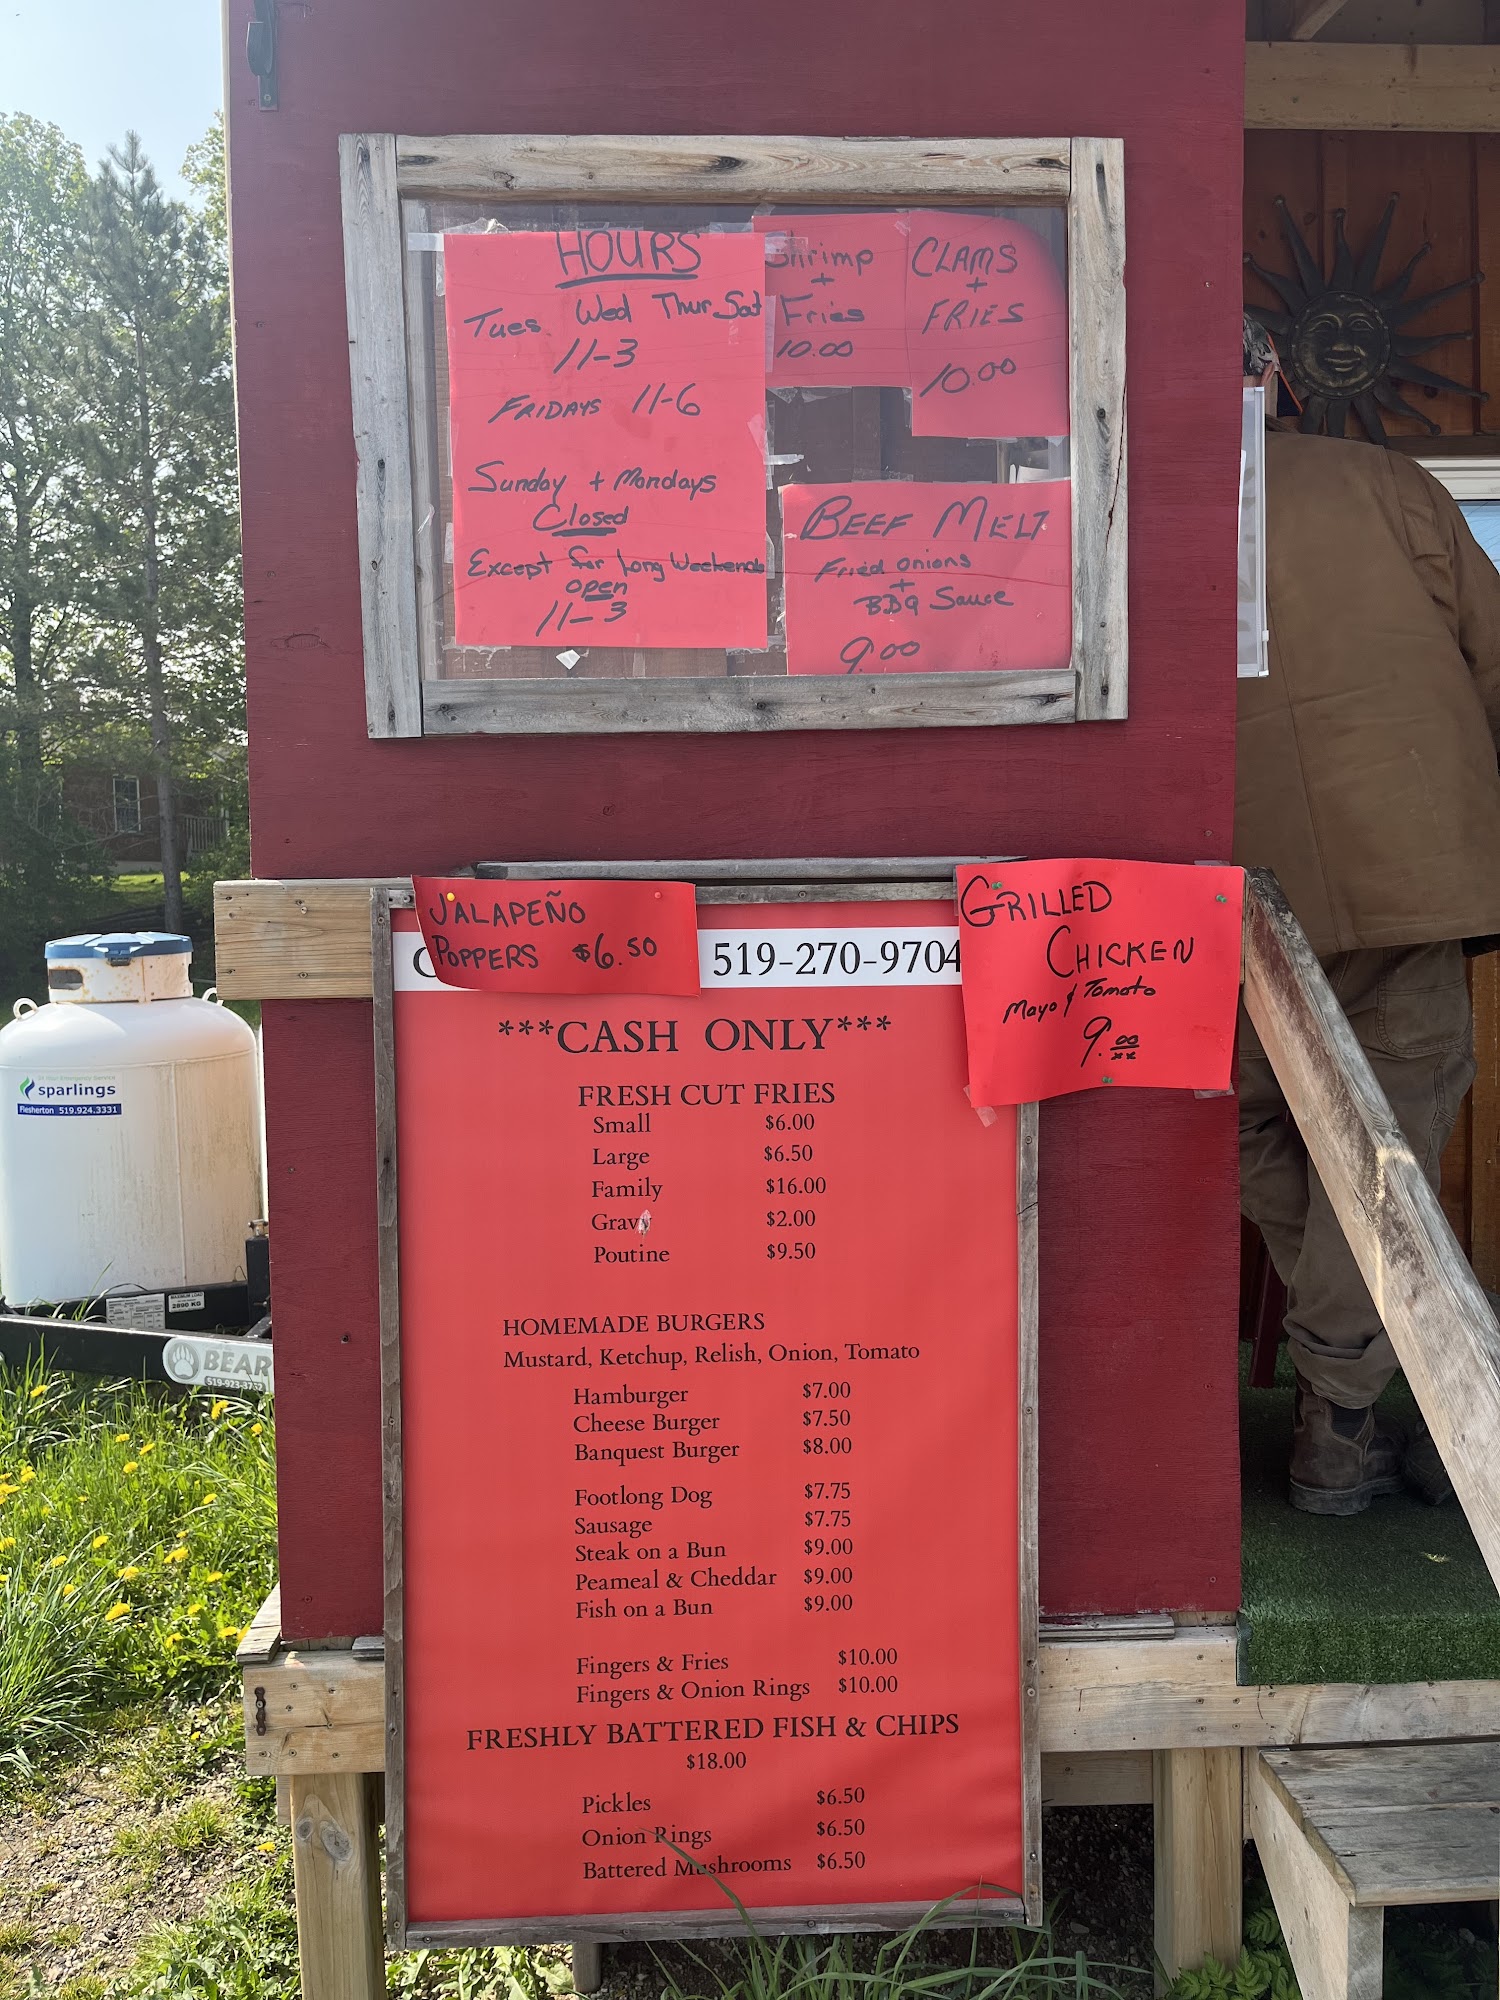 HOURS
Tues Wed Thur Sat
11-3
FRIDAYS 11-6
Sunday + Mondays
Closed
Except for long Weekends
open
11-3
Shrimp
+
Fries
10.00
CLAMS
+
FRIES
10.00
BEEF MELT
Fried onions
+
BBQ Sauce
9.00
JALAPEÑO
POPPERS $6.50
519-270-9704
GRILLED
CHICKEN
Mayo & Tomato
9.00
xx
***CASH ONLY***
FRESH CUT FRIES
Small $6.00
Large $6.50
Family $16.00
Gravy $2.00
Poutine $9.50
HOMEMADE BURGERS
Mustard, Ketchup, Relish, Onion, Tomato
Hamburger $7.00
Cheese Burger $7.50
Banquest Burger $8.00
Footlong Dog $7.75
Sausage $7.75
Steak on a Bun $9.00
Peameal & Cheddar $9.00
Fish on a Bun $9.00
Fingers & Fries $10.00
Fingers & Onion Rings $10.00
FRESHLY BATTERED FISH & CHIPS
$18.00
Pickles $6.50
Onion Rings $6.50
Battered Mushrooms $6.50
24 Hour Emergency Service
sparlings
Flesherton 519.924.3331
MAXIMUM LOAD
2800 KG
BEAR
519-923-3732